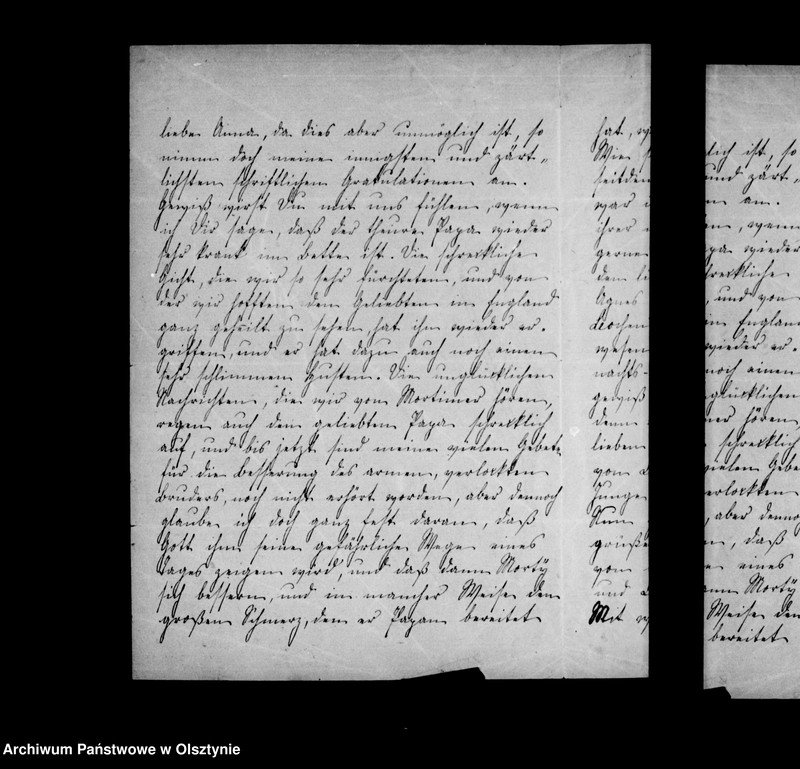 liebe Anna, da dies aber unmöglich ist, so
nimm doch meine innigsten und zärt-
lichsten schriftlichen Gratulationen an.
Gewiß wirst Du mit uns fühlen, wenn
ich Dir sage, daß der theure Papa wieder
sehr krank im Bette ist. Die schreckliche
Gicht, die wir so sehr fürchteten, und von
der wir hofften den Geliebten in England
ganz geheilt zu sehen, hat ihn wieder er-
griffen, und er hat dazu auch noch einen
sehr schlimmen Husten. Die unglücklichen
Nachrichten, die wir von Mortimer hören,
regen auch den geliebten Papa schrecklich
auf, und bis jetzt sind meine vielen Gebete
für die Besserung des armen, verlockten
Bruders, noch nicht erhört worden, aber dennoch
glaube ich doch ganz fest daran, daß
Gott ihm seine gefährlichen Wege eines
Tages zeigen wird, und daß dann Morty
sich bessern, und in mancher Weise den
großen Schmerz, den er Papan bereitet
hat,
Wie
seitdem
war
ihrer
gerne
den
Agnes
Wochen
wesen
nachts-
gewiß
denn
lieben
von
Junge
Nun
grüße
von
und
Mit
lich ist, so
und zärt-
n an.
en, wenn
pa wieder
schreckliche
, und von
in England
wieder er-
noch einen
glücklichen
mer hören,
schrecklich
vielen Gebe
verlockten
, aber denno
n, daß
eines
ann Morty
Weise den
bereitet
Archiwum Państwowe w Olsztynie